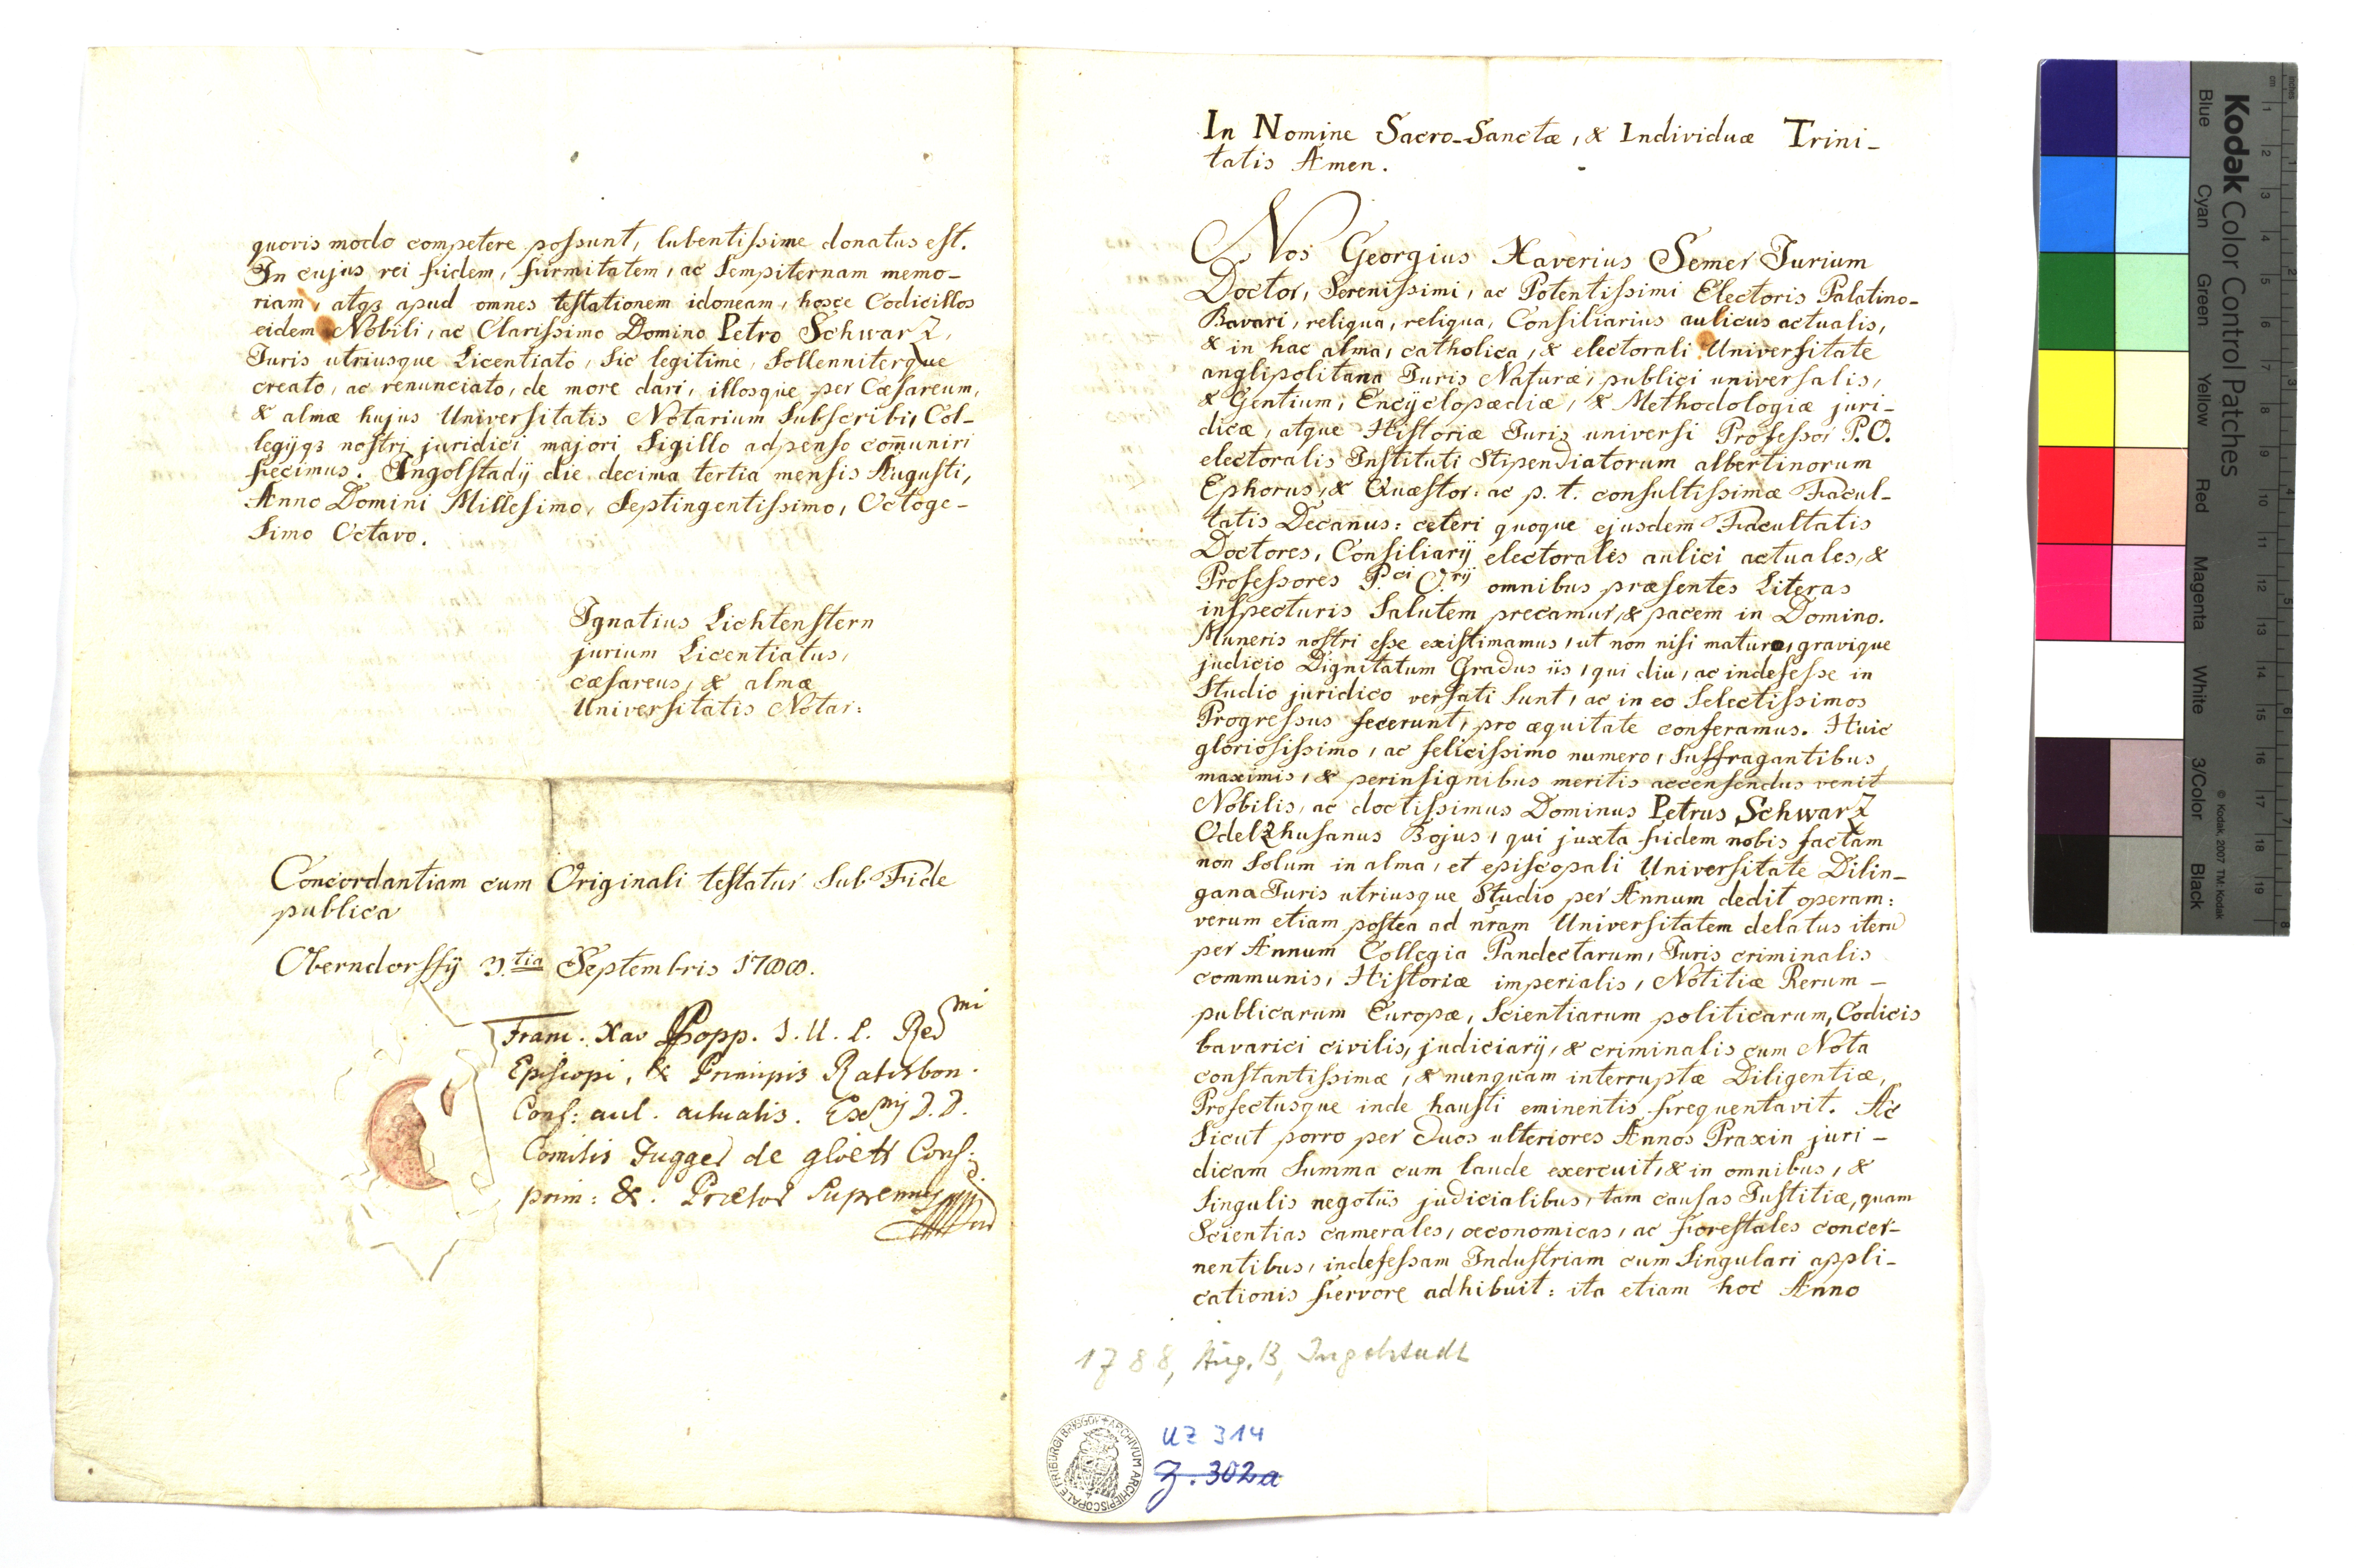 In Nomine Sacro-Sanctæ, & Individuæ Trini-
tatis Amen.
Nos Georgius Xaverius Semer Jurium
Doctor, Serenissimi, ac Potentissimi Electoris Palatino-
Bavari, reliqua, reliqua, Consiliarius aulicus actualis,
& in hac alma, catholica, & electorali Universitate
anglipolitana Juris Naturæ, publici universalis,
& Gentium, Encÿclopædiæ, & Methodologiæ juri-
dicæ, atque Historiæ Juris universi Professor P.O.
electoralis Instituti Stipendiatorum albertinorum
Ephorus, & Quæstor: ac p. t. consultissimæ Facul-
tatis Decanus: ceteri quoque ejusdem Facultatis
Doctores, Consiliarÿ electorales aulici actuales, &
Professores P.ci O.rÿ omnibus præsentes Literas
inspecturis Salutem precamur, & pacem in Domino.
Muneris nostri esse existimamus, ut non nisi maturo, gravique
judicio Dignitatum Gradus iis, qui diu, ac indefesse in
Studio juridico versati sunt, ac in eo Selectissimos
Progressus fecerunt, pro æquitate conferamus. Huic
gloriosissimo, ac felicissimo numero, Suffragantibus
maximis, & perinsignibus meritis accensendus venit
Nobilis, ac doctissimus Dominus Petrus Schwarz
Odelzhusanus Bojus, qui juxta fidem nobis factam
non solum in alma, et episcopali Universitate Dilin-
gana Juris utriusque Studio per Annum dedit operam:
verum etiam postea ad nr̃am Universitatem delatus iteru
per Annum Collegia Pandectarum, Juris criminalis
communis, Historiæ imperialis, Notitiæ Rerum-
publicarum Europæ, Scientiarum politicarum, Codicis
bavarici civilis, judiciarÿ, & criminalis cum Nota
constantissimæ, & nunquam interruptæ Diligentiæ,
Profectusque inde hausti eminentis frequentavit. Ac
sicut porro per duos ulteriores Annos Praxin juri-
dicam Summa cum laude exercuit, & in omnibus, &
singulis negotiis judicialibus, tam causas Justitiæ, quam
Scientias camerales, œconomicas, ac forestales concer-
nentibus, indefessam Industriam cum singulari appli-
cationis fervore adhibuit: ita etiam hoc Anno
1788, Aug. 13, Ingolstadt
UZ 314
Z. 302a
ARCHIVUM ARCHIEPISCOPALE FRIBURGI BRISGOV
quovis modo competere possunt, lubentissime donatus est.
In cujus rei fidem, firmitatem, ac sempiternam memo-
riam, atqz apud omnes testationem idoneam, hosce Codicillos
eidem Nobili, ac Clarissimo Domino Petro Schwarz,
Juris utriusque Licentiato, sic legitime, sollenniterque
creato, ac renunciato, de more dari, illosque per Cæsareum,
& almæ hujus Universitatis Notarium Subscribi, Col-
legÿqz nostri juridici majori Sigillo adpenso com̃uniri
fecimus. Ingolstadÿ die decima tertia mensis Augusti,
Anno Domini Millesimo, Septingentissimo, Octoge-
simo Octavo.
Ignatius Lichtenstern
jurium Licentiatus,
cæsareus, & almæ
Universitatis Notar:
Concordantiam cum Originali testatur sub Fide
publica
Oberndorffÿ 3.tia Septembris 1788.
Franc. Xav Popp. J. U. L. Red mi
Episcopi, & Principis Ratisbon.
Cons: aul. actualis. Exmÿ D. D.
Comitis Fugger de glött Cons:
prim: &. Prætor supremus
Kodak Color Control Patches
Blue
Cyan
Green
Yellow
Red
Magenta
White
3/Color
Black
© Kodak, 2007 TM: Kodak
cm 1 2 3 4 5 6 7 8 9 10 11 12 13 14 15 16 17 18 19
inches 1 2 3 4 5 6 7 8